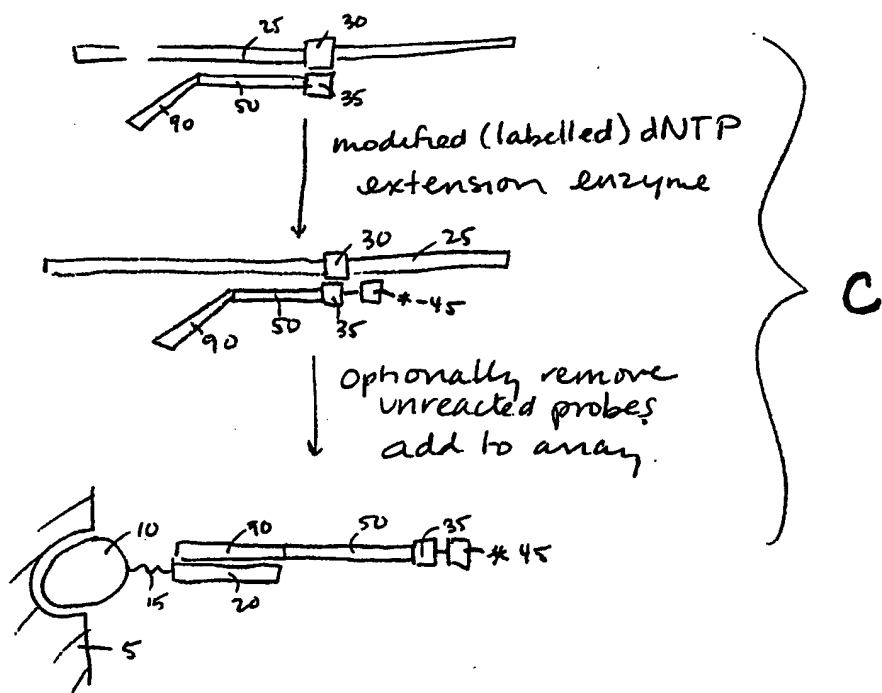 25 30
90 50 35
modified (labelled) dNTP
extension enzyme
C
30 25
90 50 35 *-45
optionally remove
unreacted probes
add to array
10 90 50 35 * 45
15 20
5